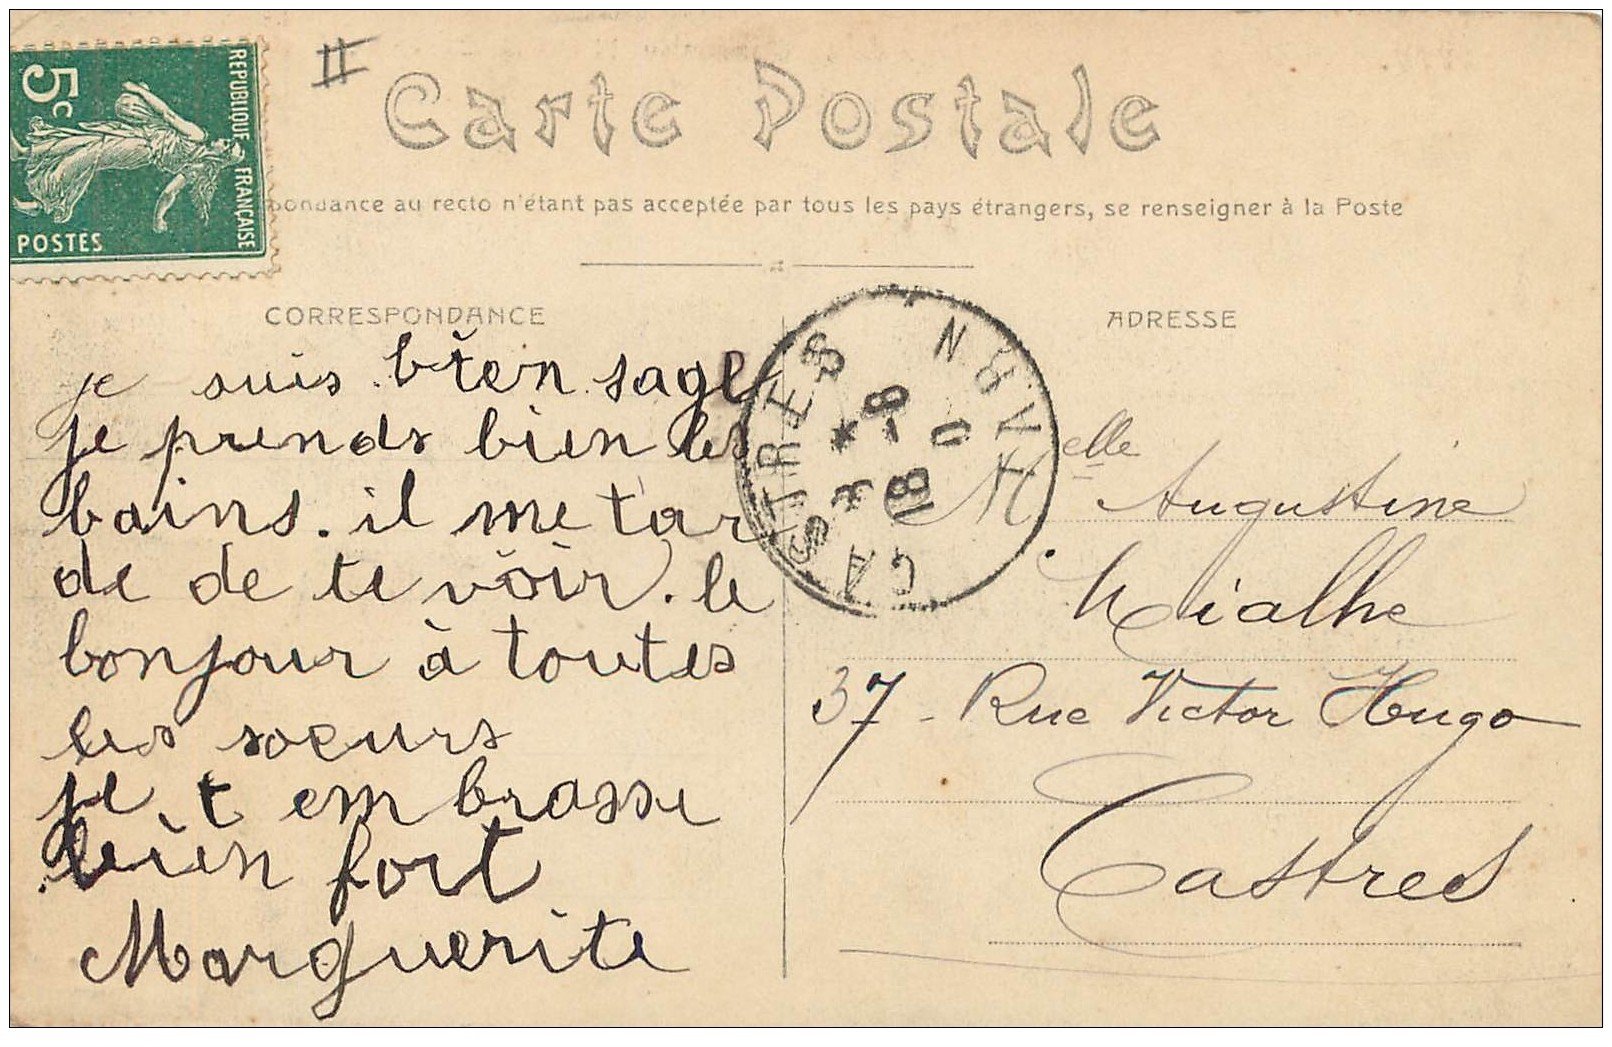 5c
REPUBLIQUE FRANÇAISE
POSTES
Carte Postale
pondance au recto n'étant pas acceptée par tous les pays étrangers, se renseigner à la Poste
CORRESPONDANCE
je suis bien sage
je prends bien les
bains. il me tar
de de te voir. le
bonjour à toutes
les soeurs
je t embrasse
bien fort
Marguerite
CASTRES
TARN
ADRESSE
Melle Augustine
Mialhe
37 - Rue Victor Hugo
Castres